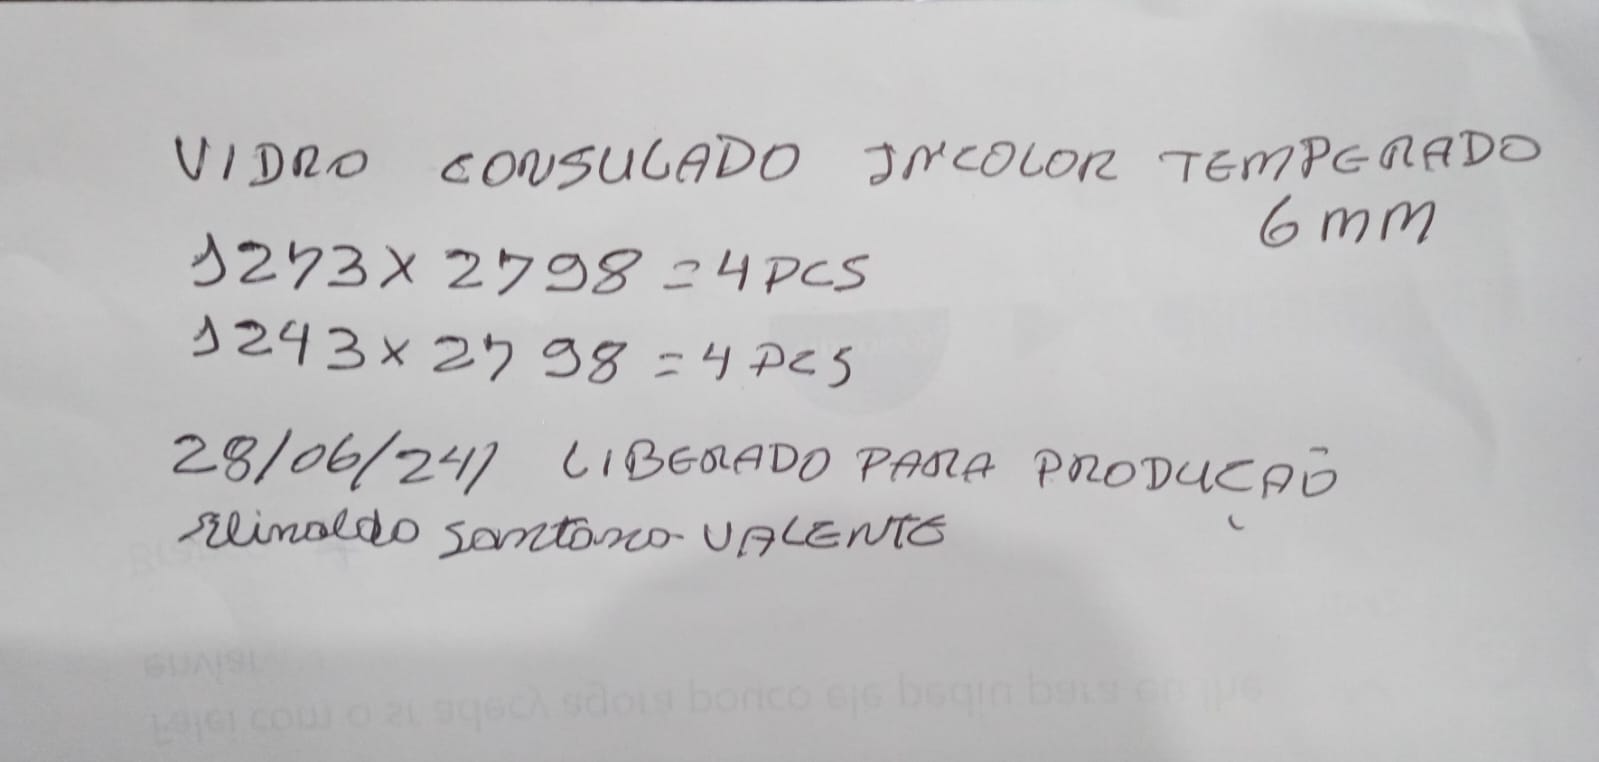 VIDRO CONSULADO INCOLOR TEMPERADO
6 mm
1273 x 2798 = 4 PCS
1243 x 2798 = 4 PCS
28/06/24 LIBERADO PARA PRODUÇÃO
Elinaldo Santana VALENTE